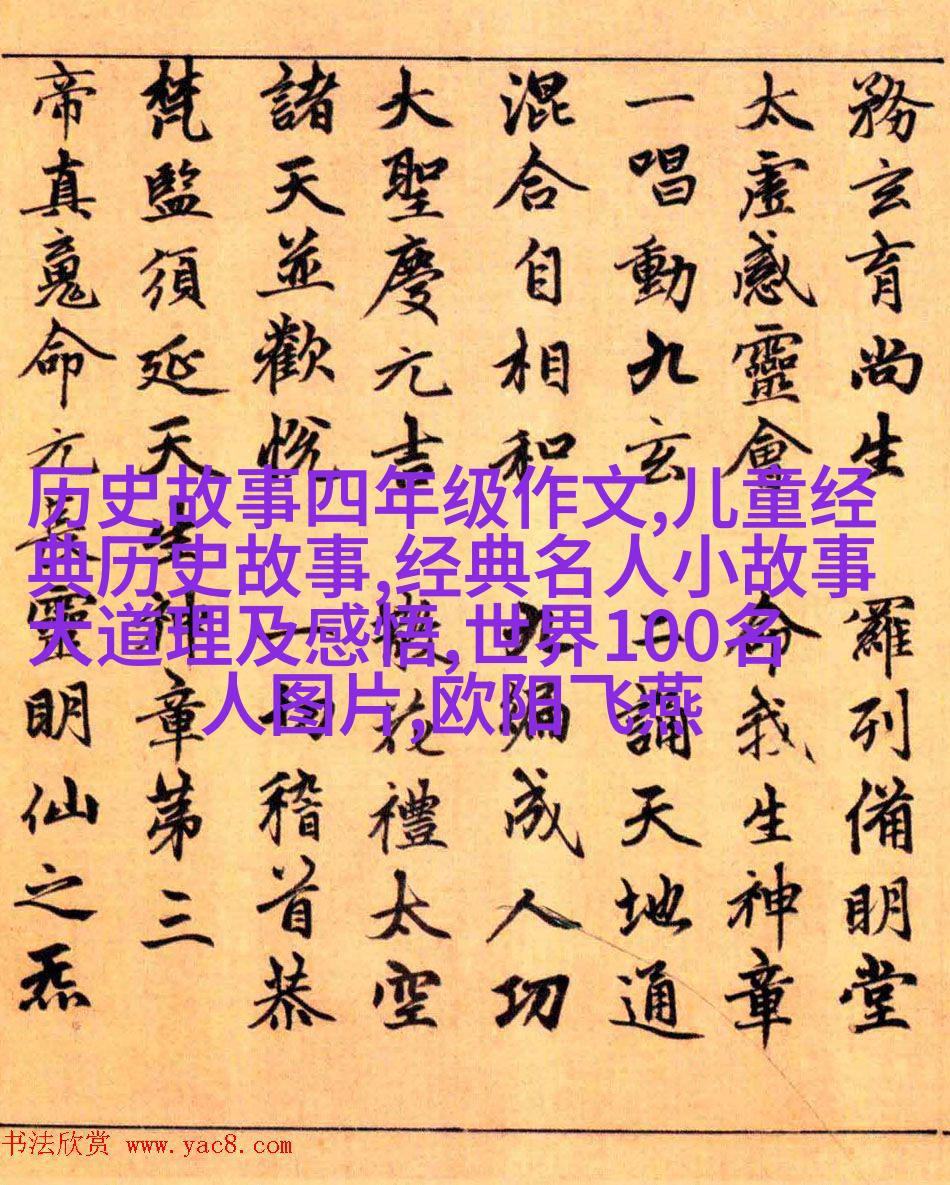 務玄育尚生 羅列備明堂
太虛感靈會 命我生神章
一唱動九玄 二誦天地通
混合自相和 九 成人功
大聖慶元吉 花禮太空
諸天並歡悅 一 稽首恭
梵監須延天生神章第三
帝真 命元 靈明仙之炁
历史故事四年级作文,儿童经
典历史故事,经典名人小故事
大道理及感悟,世界100名
人图片,欧阳飞燕
书法欣赏 www.yac8.com